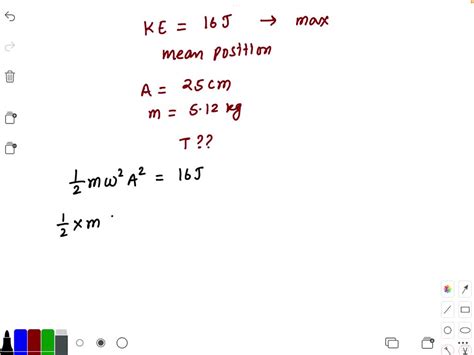 KE = 16J → max
mean position
A = 25cm
m = 5.12 kg
T ??
1/2 mω²A² = 16J
1/2 × m